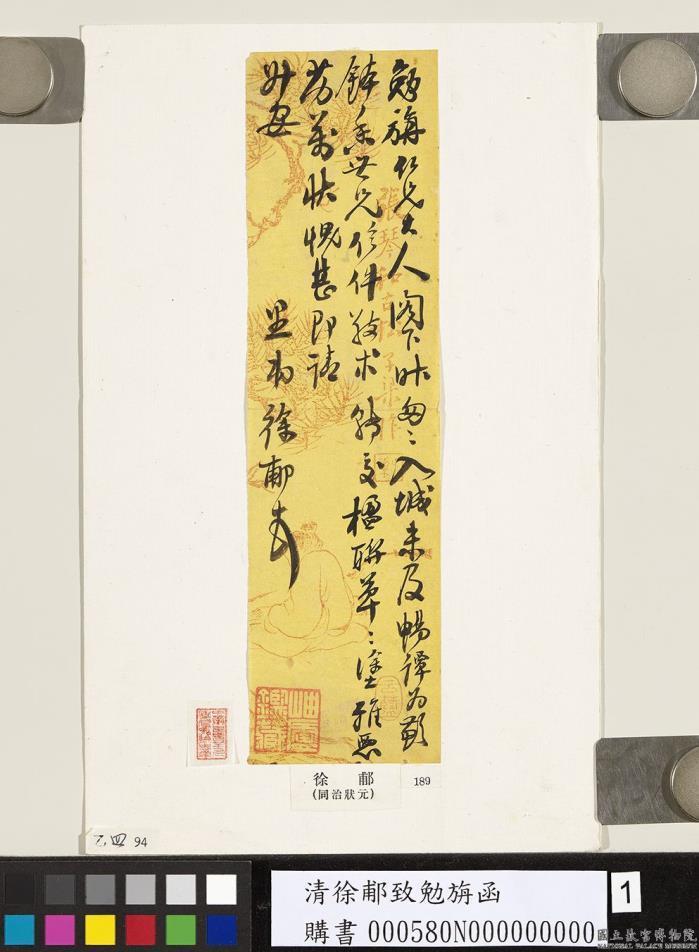 勉旃仁兄大人閣下昨匆匆入城未及暢譚為歉
世兄信件敬求轉交楹聯草草塗雅惡
劣萬狀愧甚即請
升安
徐郙
張琴和古松
徐郙
(同治狀元)
189
乙.四 94
清徐郙致勉旃函
購書 000580N000000000
1
國立故宮博物院
NATIONAL PALACE MUSEUM